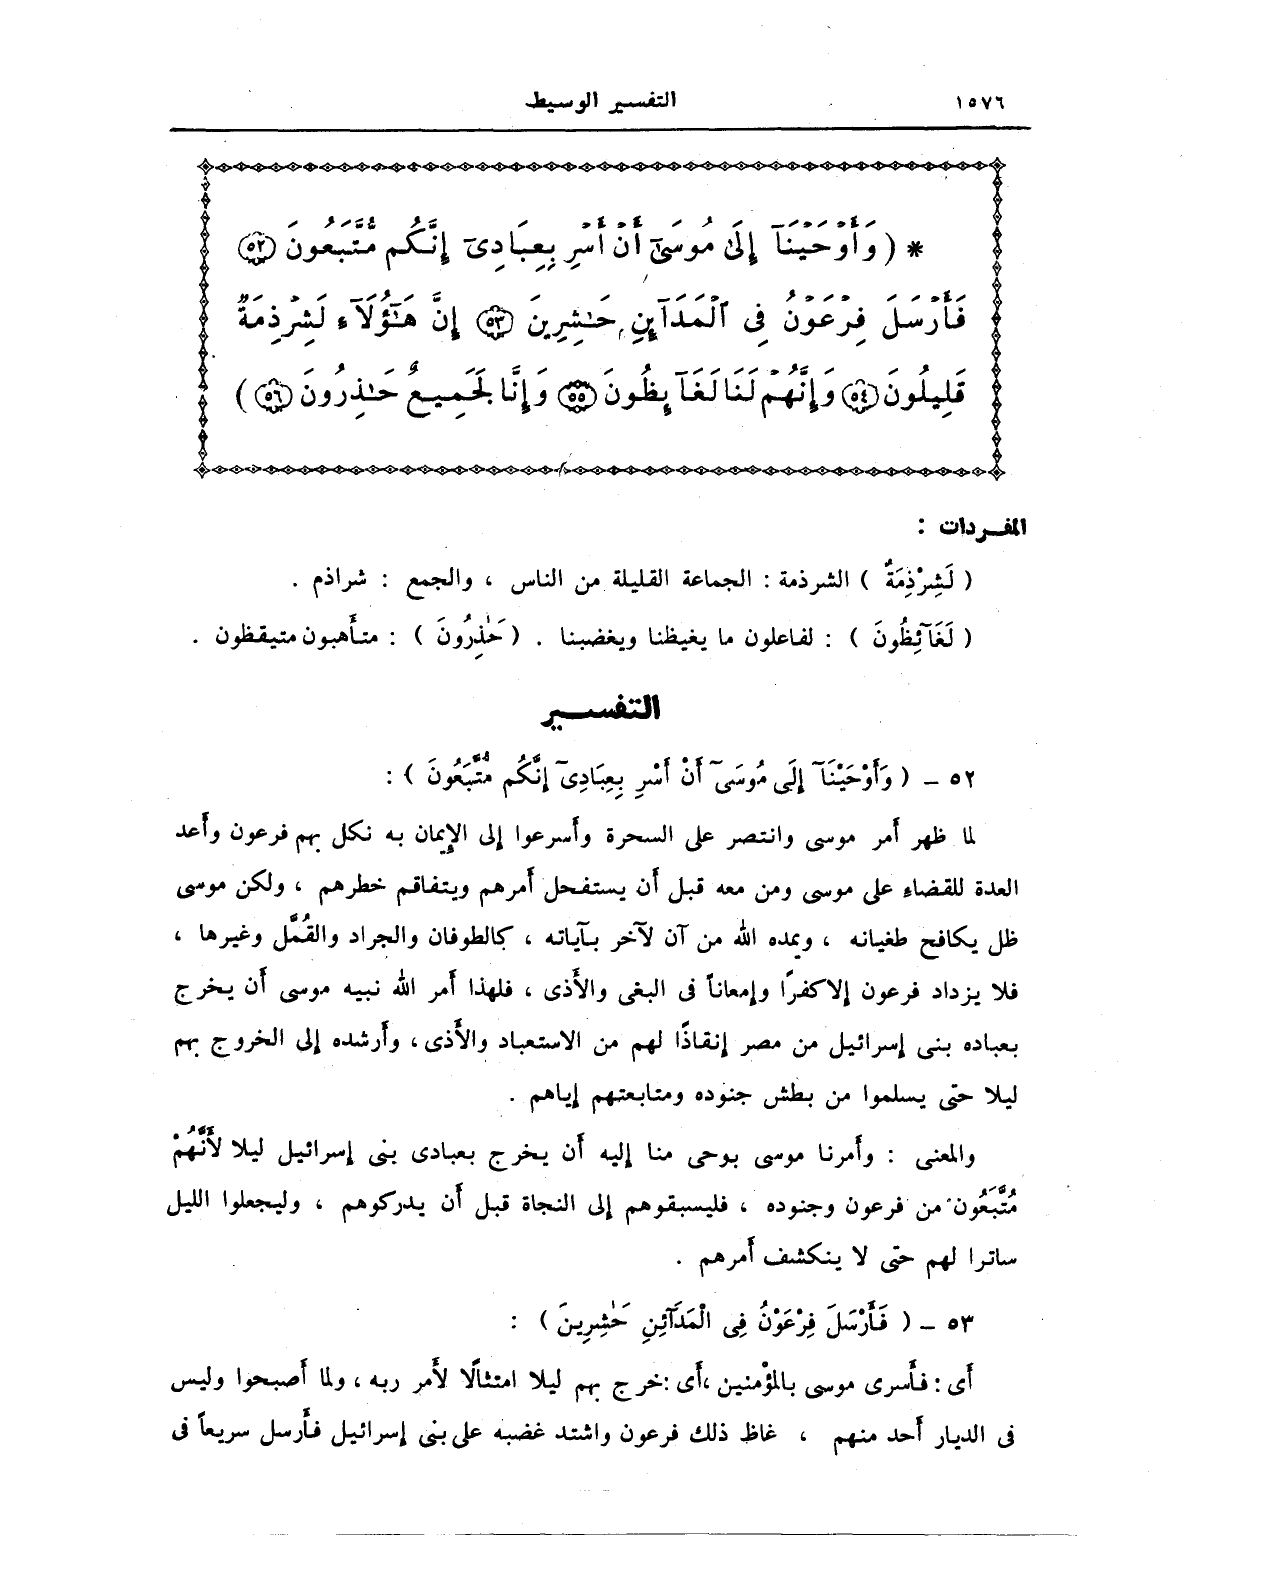 ١٥٧٦ التفسير الوسيط
* ( وَأَوْحَيْنَآ إِلَىٰ مُوسَىٰٓ أَنْ أَسْرِ بِعِبَادِىٓ إِنَّكُم مُّتَّبَعُونَ ٥٢
فَأَرْسَلَ فِرْعَوْنُ فِى ٱلْمَدَآئِنِ حَٰشِرِينَ ٥٣ إِنَّ هَٰٓؤُلَآءِ لَشِرْذِمَةٌ
قَلِيلُونَ ٥٤ وَإِنَّهُمْ لَنَا لَغَآئِظُونَ ٥٥ وَإِنَّا لَجَمِيعٌ حَٰذِرُونَ ٥٦ )
المفـردات :
( لَشِرْذِمَةٌ ) الشرذمة : الجماعة القليلة من الناس ، والجمع : شراذم .
( لَغَآئِظُونَ ) : لفاعلون ما يغيظنا ويغضبنا . ( حَٰذِرُونَ ) : متأهبون متيقظون .
التفســير
٥٢ - ( وَأَوْحَيْنَآ إِلَى مُوسَىٓ أَنْ أَسْرِ بِعِبَادِىٓ إِنَّكُم مُّتَّبَعُونَ ) :
لما ظهر أمر موسى وانتصر على السحرة وأسرعوا إلى الإيمان به نكل بهم فرعون وأعد
العدة للقضاء على موسى ومن معه قبل أن يستفحل أمرهم ويتفاقم خطرهم ، ولكن موسى
ظل يكافح طغيانه ، ويمده الله من آن لآخر بآياته ، كالطوفان والجراد والقُمَّل وغيرها ،
فلا يزداد فرعون إلا كفرًا وإمعاناً فى البغى والأذى ، فلهذا أمر الله نبيه موسى أن يخرج
بعباده بنى إسرائيل من مصر إنقاذًا لهم من الاستعباد والأذى، وأرشده إلى الخروج بهم
ليلا حتى يسلموا من بطش جنوده ومتابعتهم إياهم .
والمعنى : وأمرنا موسى بوحى منا إليه أن يخرج بعبادى بنى إسرائيل ليلا لأَنَّهُمْ
مُتَّبَعُون من فرعون وجنوده ، فليسبقوهم إلى النجاة قبل أن يدركوهم ، وليجعلوا الليل
ساترا لهم حتى لا ينكشف أمرهم .
٥٣ - ( فَأَرْسَلَ فِرْعَوْنُ فِى الْمَدَآئِنِ حَٰشِرِينَ ) :
أى : فأسرى موسى بالمؤمنين ،أى :خرج بهم ليلا امتثالًا لأمر ربه ، ولما أصبحوا وليس
فى الديار أحد منهم ، غاظ ذلك فرعون واشتد غضبه على بنى إسرائيل فأرسل سريعاً فى